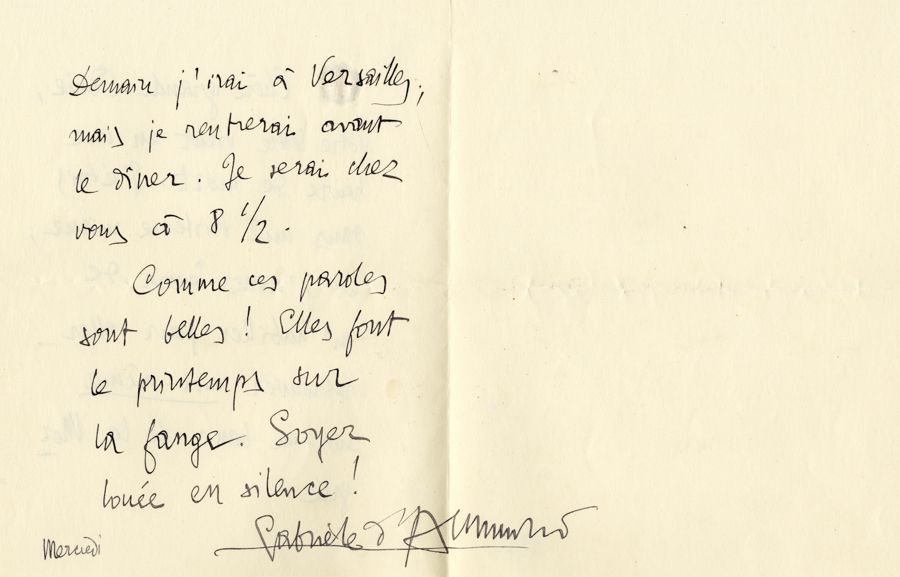 Demain j'irai à Versailles;
mais je rentrerai avant
le dîner. Je serai chez
vous à 8 1/2.
Comme ces paroles
sont belles! Elles font
le printemps sur
la fange. Soyez
louée en silence!
Gabriele d'Annunzio
Mercredi